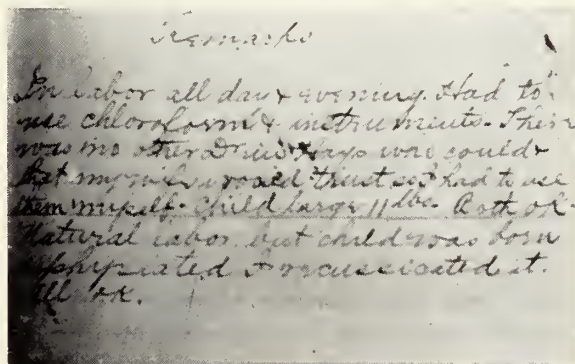 Remarks
In labor all day & evening. Had to
use chloroform & instruments. There
was no other Dr in Hays who could &
that my wife would trust so I had to use
them myself. Child large 11 lbs. Both ok
Natural labor but child was born
asphyxiated I rescusicated it.
All ok.